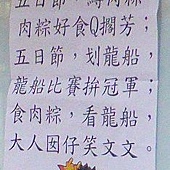 五日節，縛肉粽，
肉粽好食Q擱芳；
五日節，划龍船，
龍船比賽拚冠軍；
食肉粽，看龍船，
大人囡仔笑文文。